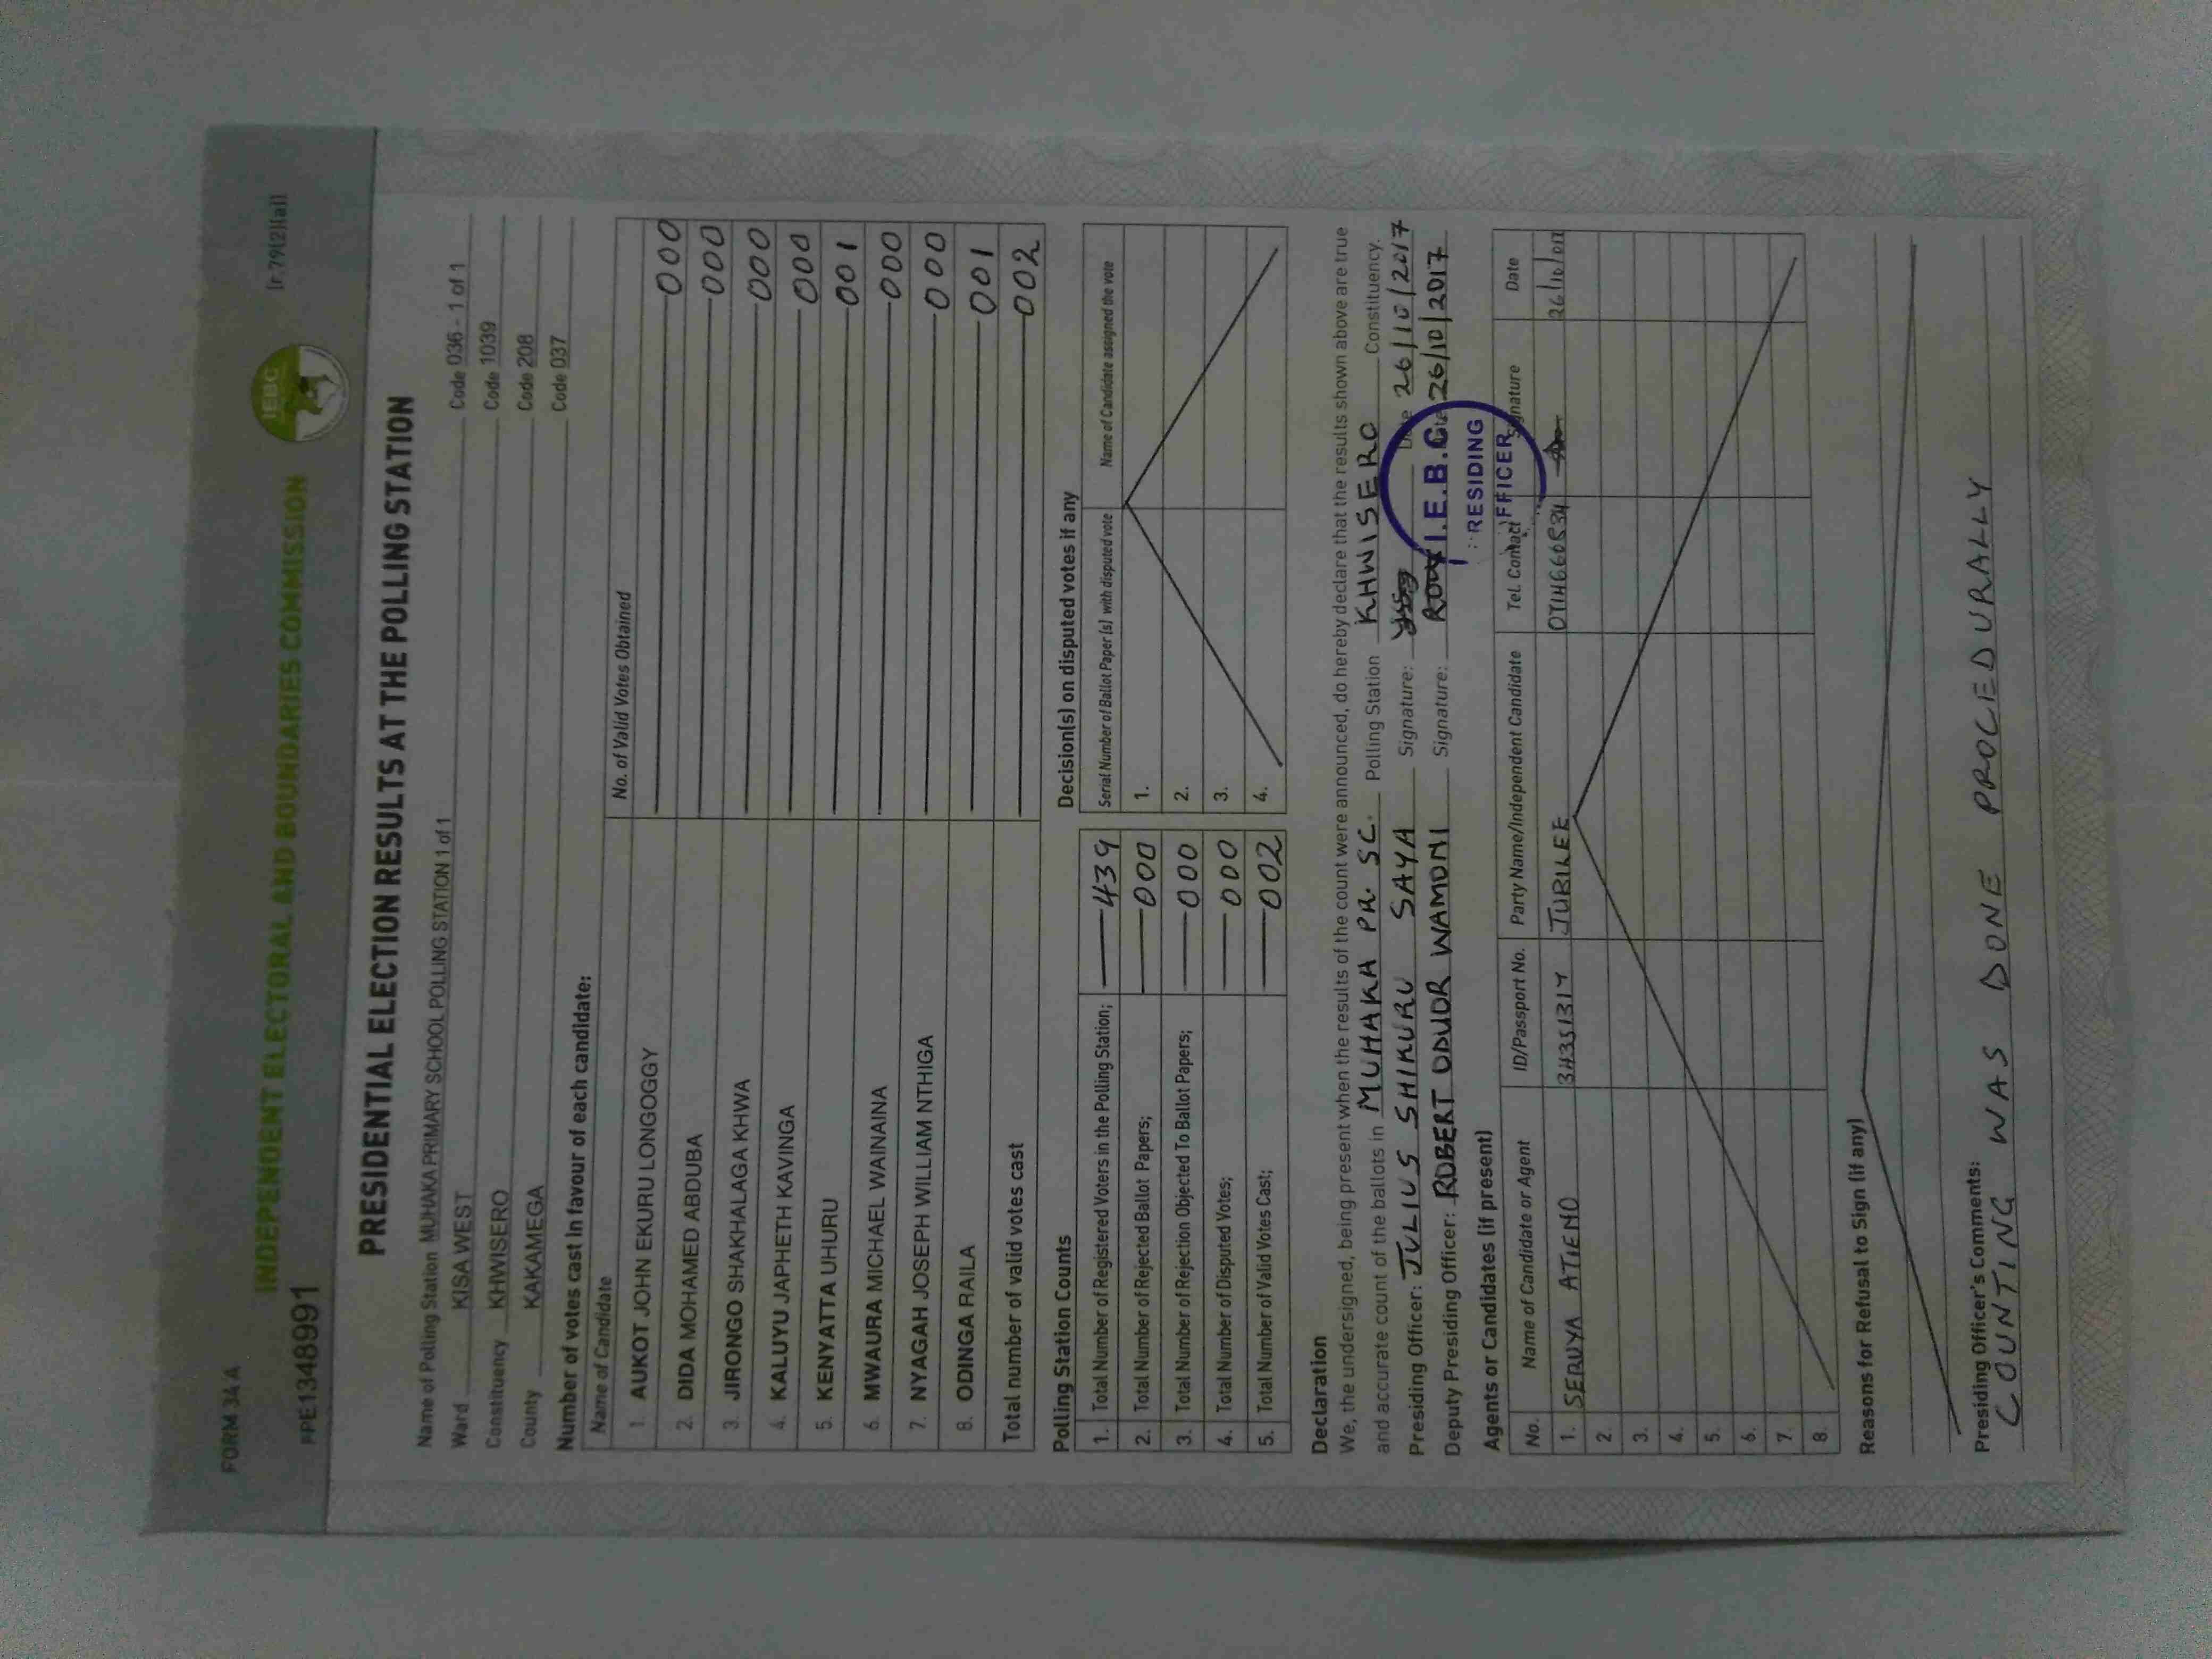 FORM 34 A
[r 79(2)(a)]
IEBC
INDEPENDENT ELECTORAL AND BOUNDARIES COMMISSION
PPE1348991
PRESIDENTIAL ELECTION RESULTS AT THE POLLING STATION
Name of Polling Station MUHAKA PRIMARY SCHOOL POLLING STATION 1 of 1 Code 036 - 1 of 1
Ward KISA WEST Code 1039
Constituency KHWISERO Code 208
County KAKAMEGA Code 037
Number of votes cast in favour of each candidate:
Name of Candidate No. of Valid Votes Obtained
1. AUKOT JOHN EKURU LONGOGGY 000
2. DIDA MOHAMED ABDUBA 000
3. JIRONGO SHAKHALAGA KHWA 000
4. KALUYU JAPHETH KAVINGA 000
5. KENYATTA UHURU 001
6. MWAURA MICHAEL WAINAINA 000
7. NYAGAH JOSEPH WILLIAM NTHIGA 000
8. ODINGA RAILA 001
Total number of valid votes cast 002
Polling Station Counts
1. Total Number of Registered Voters in the Polling Station; 439
2. Total Number of Rejected Ballot Papers; 000
3. Total Number of Rejection Objected To Ballot Papers; 000
4. Total Number of Disputed Votes; 000
5. Total Number of Valid Votes Cast; 002
Decision(s) on disputed votes if any
Serial Number of Ballot Paper(s) with disputed vote Name of Candidate assigned the vote
1.
2.
3.
4.
Declaration
We, the undersigned, being present when the results of the count were announced, do hereby declare that the results shown above are true
and accurate count of the ballots in MUHAKA PR. SC. Polling Station KHWISERO Constituency.
Presiding Officer: JULIUS SHIKURU SAYA Signature: Date 26/10/2017
Deputy Presiding Officer: ROBERT ODUOR WAMONI Signature: 26/10/2017
I.E.B.C
RESIDING
FFICER
Agents or Candidates (if present)
No. Name of Candidate or Agent ID/Passport No. Party Name/Independent Candidate Tel. Contact Signature Date
1. SERUYA ATIENO JUBILEE
2.
3.
4.
5.
6.
7.
8.
Reasons for Refusal to Sign (if any)
Presiding Officer's Comments:
COUNTING WAS DONE PROCEDURALLY